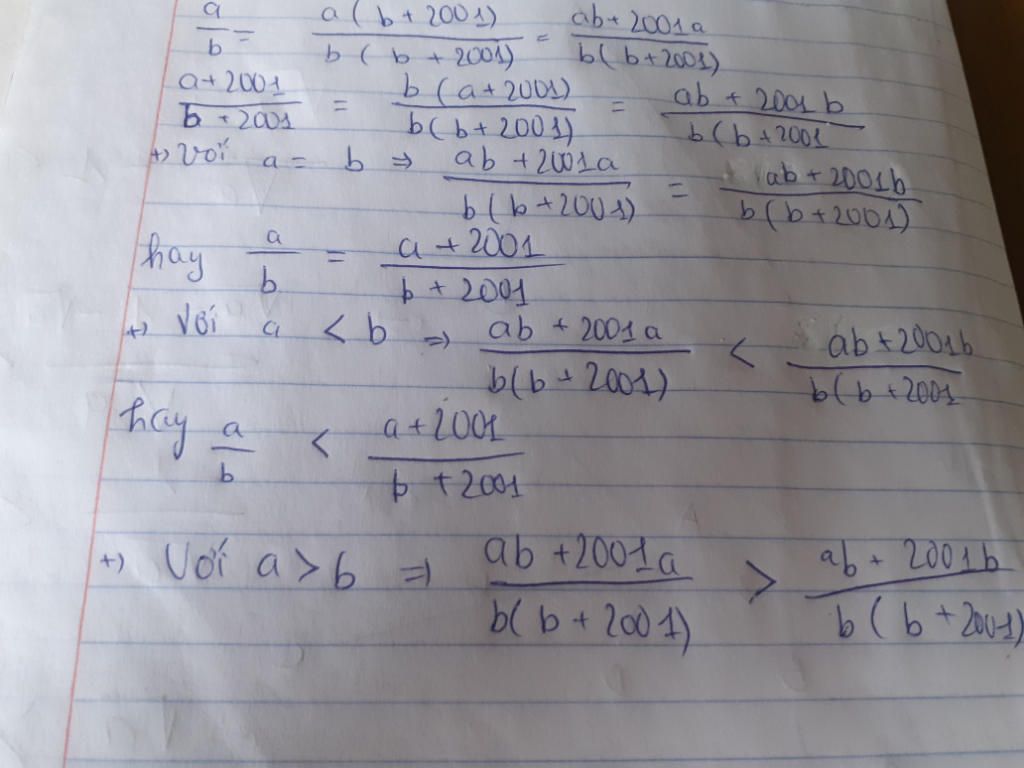 a/b = a(b+2001)/b(b+2001) = ab+2001a/b(b+2001)
a+2001/b+2001 = b(a+2001)/b(b+2001) = ab+2001b/b(b+2001
+) Với a = b ⇒ ab+2001a/b(b+2001) = ab+2001b/b(b+2001)
hay a/b = a+2001/b+2001
+) Với a < b ⇒ ab+2001a/b(b+2001) < ab+2001b/b(b+2001
hay a/b < a+2001/b+2001
+) Với a > b ⇒ ab+2001a/b(b+2001) > ab+2001b/b(b+2001)